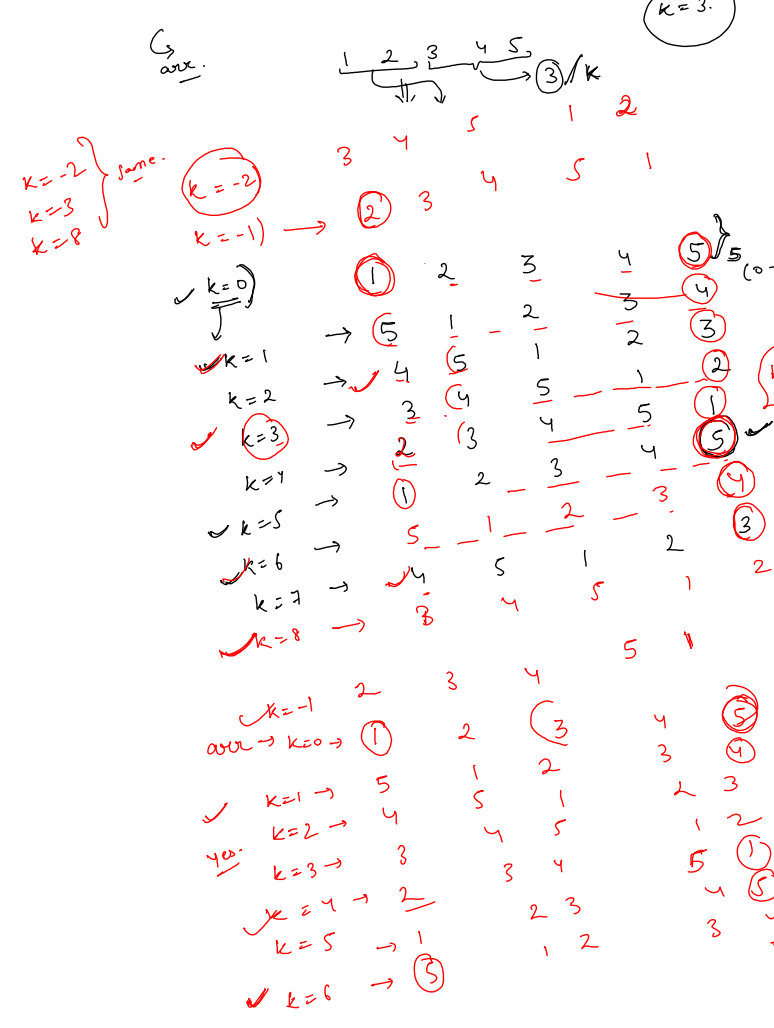 k=3.
arr.
1 2 3 4 5 3 / k
3 4 5 1 2
k=-2
k=3
k=8
same.
k=-2
k=-1) → 2 3 4 5 1
k=0) 1 2 3 4 5 } 5
k=1 → 5 1 2 3 4
k=2 → 4 5 1 2 3
k=3 → 3 4 5 1 2
k=4 → 2 3 4 5 1
k=5 → 1 2 3 4 5
k=6 → 5 1 2 3 4
k=7 → 4 5 1 2 3
k=8 → 3 4 5 1 2
k=-1 2 3 4 5 1
arr → k=0 → 1 2 3 4 5
k=1 → 5 1 2 3 4
k=2 → 4 5 1 2 3
yes.
k=3 → 3 4 5 1 2
k=4 → 2 3 4 5 1
k=5 → 1 2 3 4 5
k=6 → 5 1 2 3